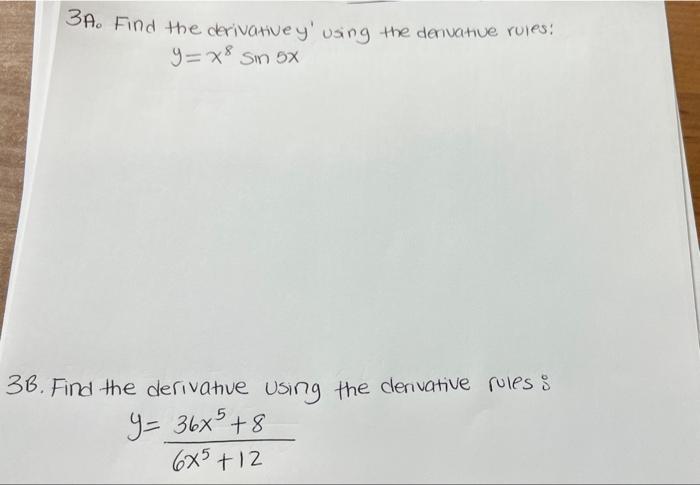 3A. Find the derivative y' using the derivative rules:
y = x⁸ sin 5x
3B. Find the derivative using the derivative rules:
y = 36x⁵ + 8
6x⁵ + 12